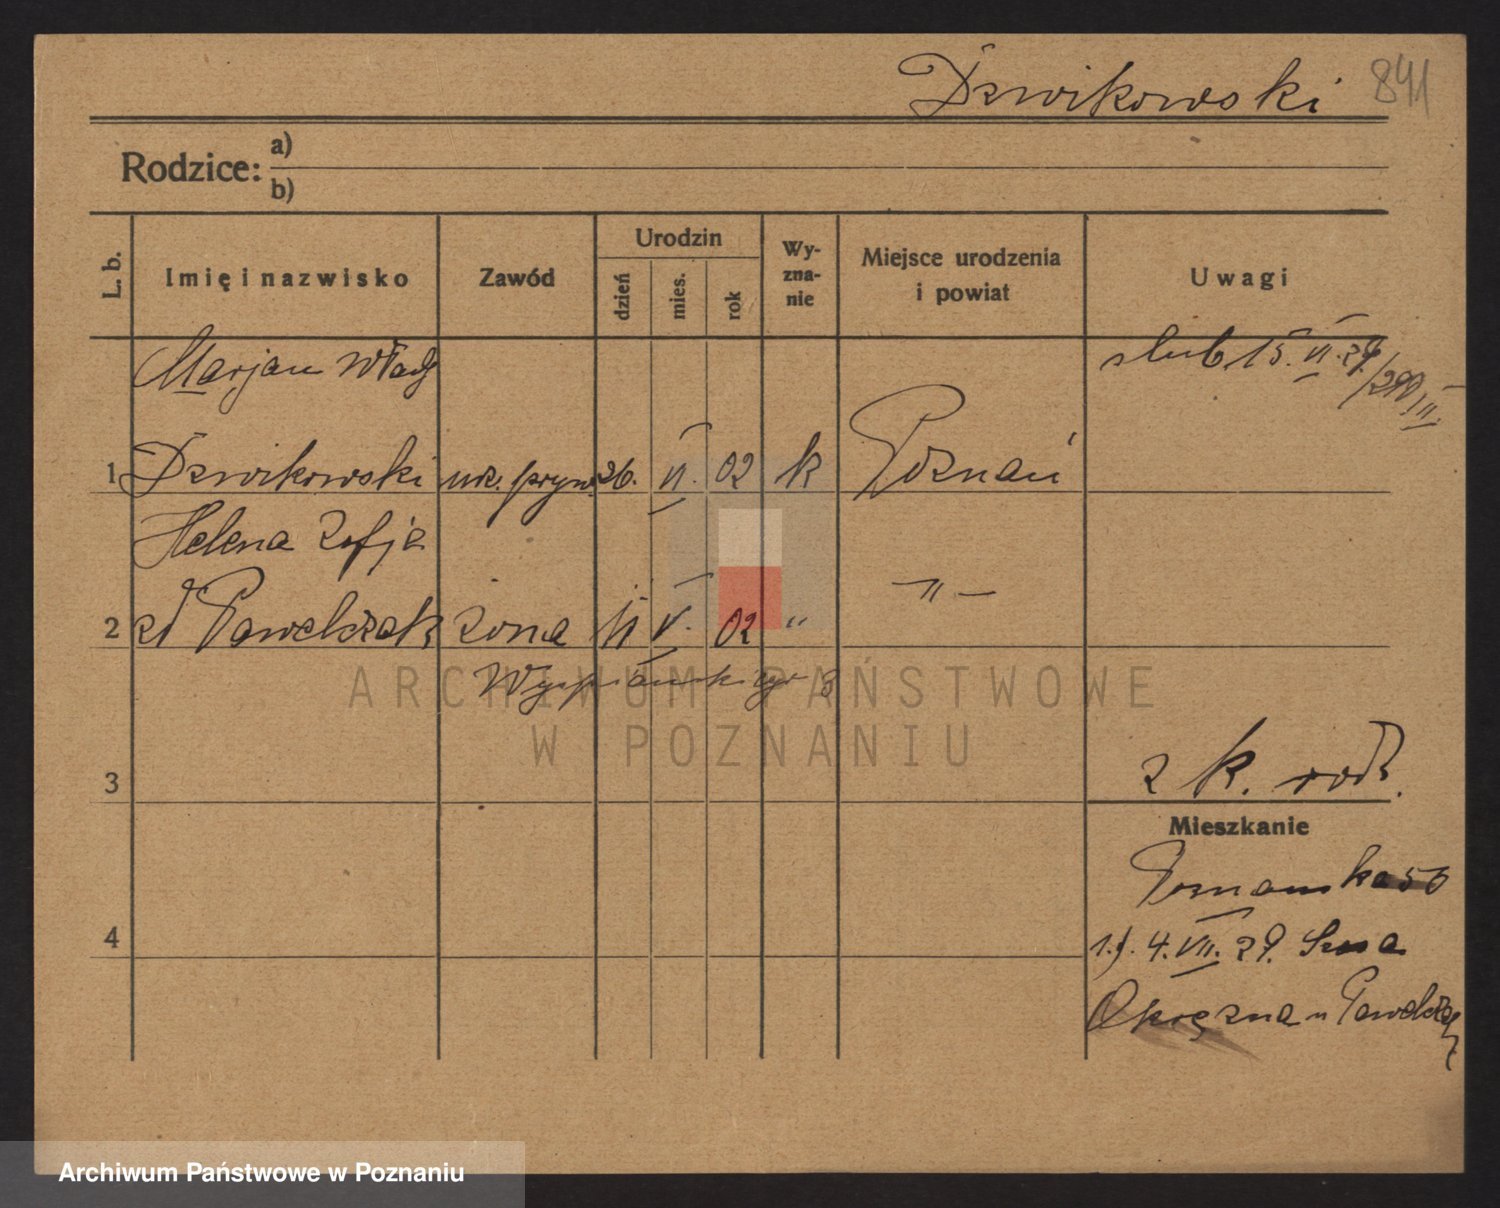 Dzwikowski 841
Rodzice: a)
b)
L. b.
Imię i nazwisko
Zawód
Urodzin
dzień
mies.
rok
Wy-
zna-
nie
Miejsce urodzenia
i powiat
Uwagi
Marjan Wład
ślub 15. VI. 29. /290 III.
1 Dzwikowski urz. pryw. 26. VI. 02 k Poznań
Helena Zofja
2 zd Pawelczak żona 11 V. 02 " " —
Wyspiańskiego 8
3
2 k. rodz.
Mieszkanie
Poznańska 50
4
1.) 4. VII. 29.
Okrężna u Pawelczak
ARCHIWUM PAŃSTWOWE
W POZNANIU
Archiwum Państwowe w Poznaniu